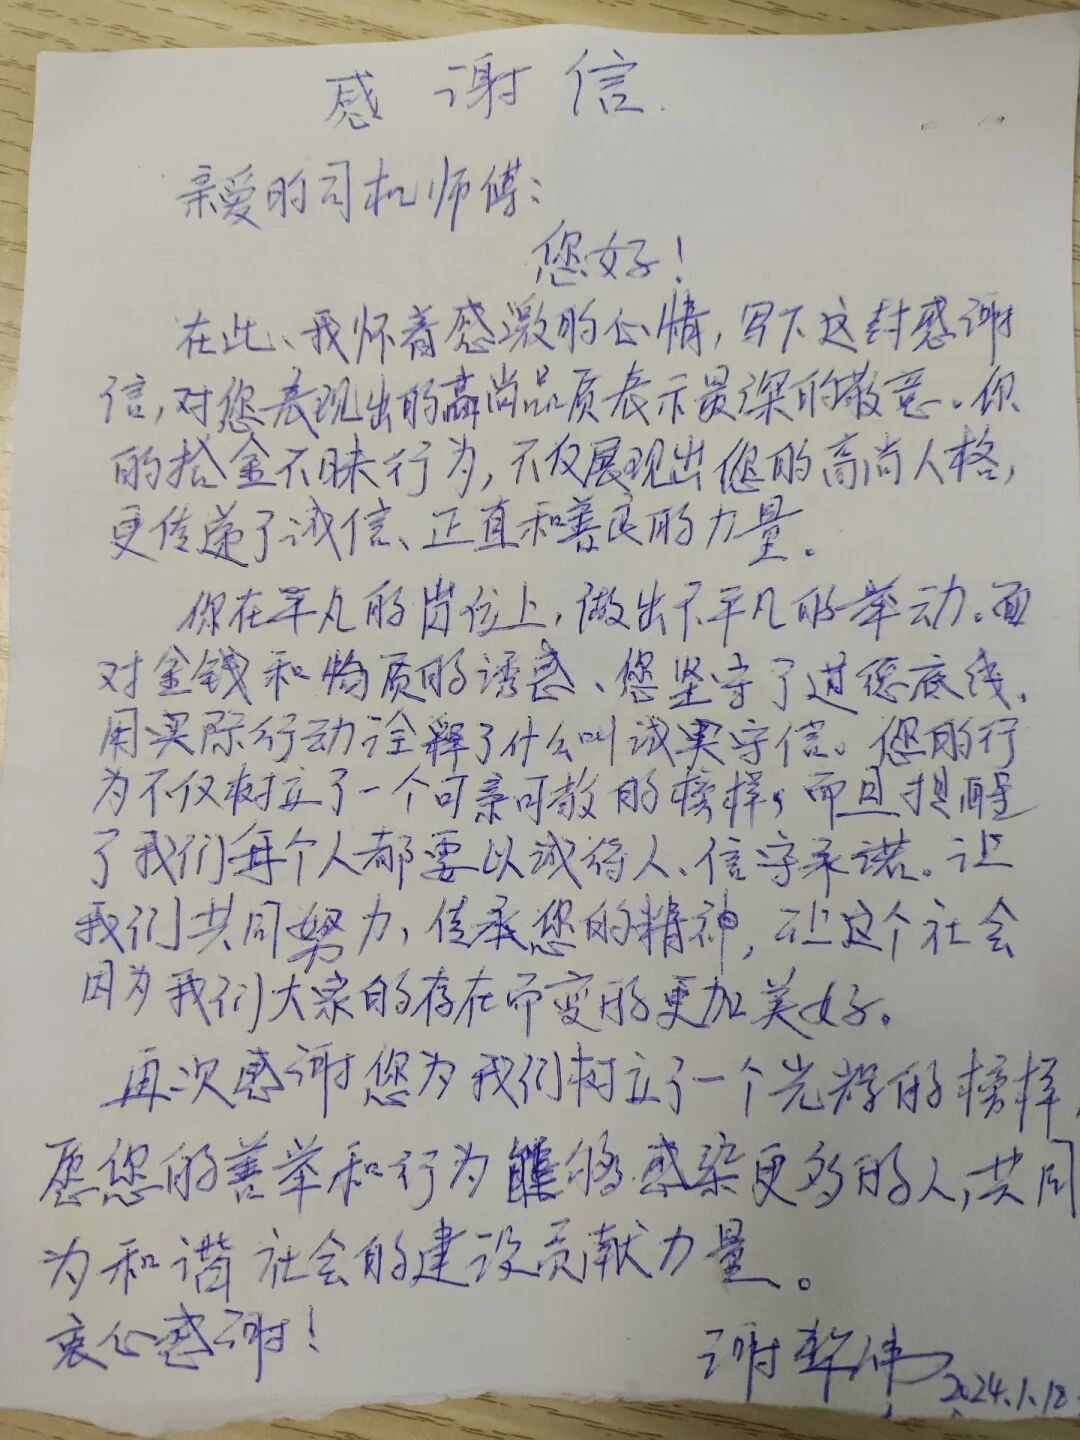 感谢信
亲爱的司机师傅：
您好！
在此、我怀着感激的心情，写下这封感谢
信，对您表现出的高尚品质表示最深的敬意。你
的拾金不昧行为，不仅展现出您的高尚人格，
更传递了诚信、正直和善良的力量。
你在平凡的岗位上，做出不平凡的举动。面
对金钱和物质的诱惑、您坚守了道德底线，
用实际行动诠释了什么叫诚实守信。您的行
为不仅树立了一个可亲可敬的榜样，而且提醒
了我们每个人都要以诚待人、信守承诺。让
我们共同努力，传承您的精神，让这个社会
因为我们大家的存在而变的更加美好。
再次感谢您为我们树立了一个光辉的榜样，
愿您的善举和行为能够感染更多的人，共同
为和谐社会的建设贡献力量。
衷心感谢！
谢 伟 2024.1.18